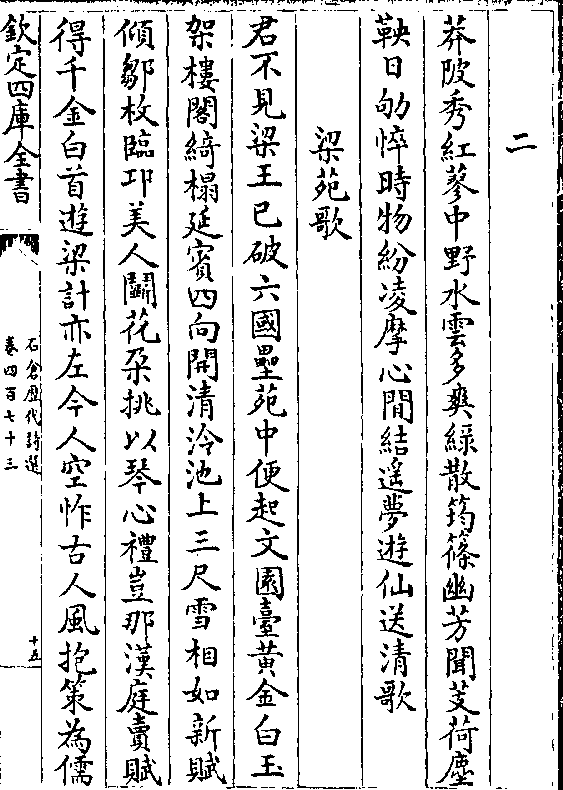 二
莽陂秀紅蓼中野水雲多爽綠散筠篠幽芳聞芰荷塵
鞅日劬悴時物紛凌摩心閒結遥夢遊仙送清歌
梁苑歌
君不見梁王已破六國壘苑中便起文園臺黄金白玉
架樓閣綺榻延賓四向開清泠池上三尺雪相如新賦
傾鄒枚臨卭美人鬭花朶挑以琴心禮豈那漢庭賣賦
得千金白首遊梁計亦左今人空怍古人風抱策為儒
欽定四庫全書
石倉歷代詩選
卷四百七十三
十五